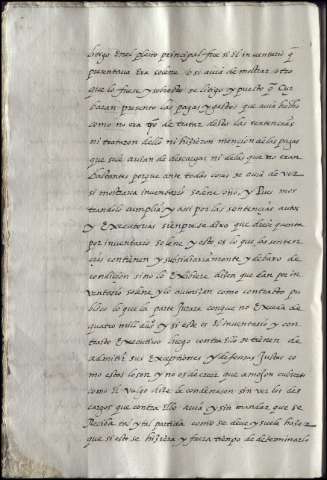 luego en el pleito principal fue si el inventario q
presentava era solene o si avia de mostrar otro
que lo fuese y sobre esto se litigo y puesto q
presento las pagas y gastos que avia hecho
como no era de tratar destos las sentencias
ni trataron dello ni hizieron mencion de las pagas
que se le avian de descargar ni de las que no eran
bastantes porque ante todas cosas se avia de ver
si mostrava inventario solene o no, y Pues mos
trandolo cumplia y assi por las sentencias autos
y Executorias siempre se dixo que diese quenta
por inventario solene y esto es lo que las senten
cias contienen y subsidiariamente y debaxo de
condicion sino lo Exibiere dizen que den por in
ventario solene y lo autorizan como contracto pu
blico lo que la parte Jurare conque no Exceda de
quatro mill du y si este es el inventario y con
trato Executivo luego contra Ello se tienen de
admitir sus Exceptiones y defensas Justas co
mo estas lo son y no es de creer que
como el vulgo dize le condenasen sin ver los des
cargos que contra Ello avia y sin mandar que se
Reciva tal y tal partida como se deve y suele hazer
que si esto se hiziera y fuera tiempo de determinarlo